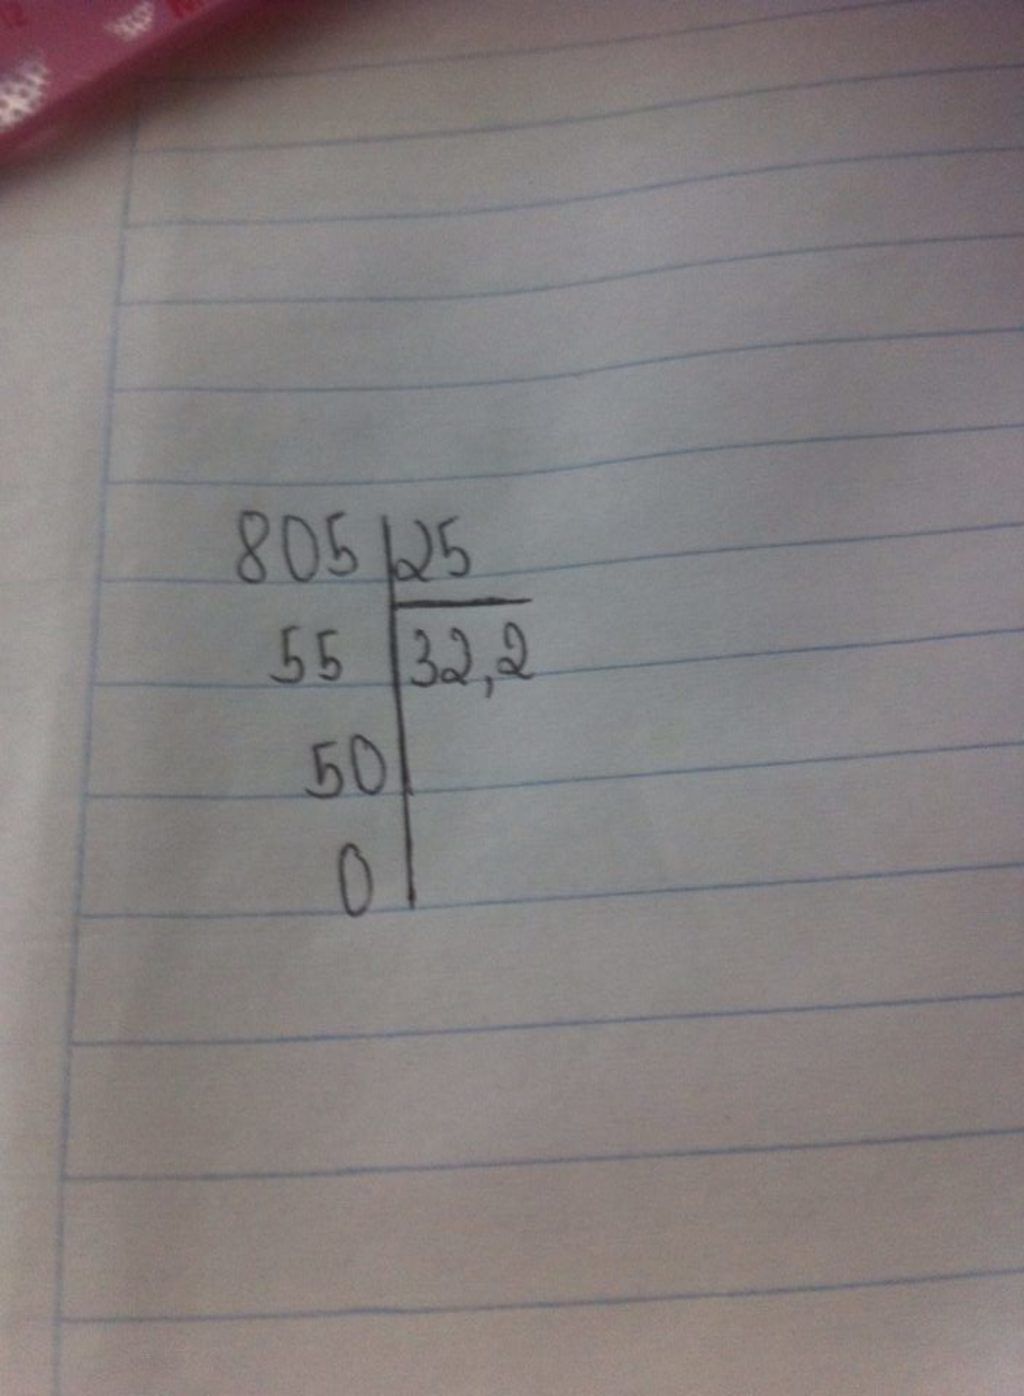 805 25
55 32,2
50
0